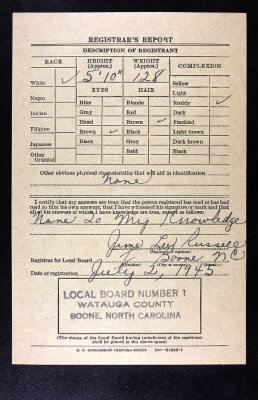 REGISTRAR'S REPORT
DESCRIPTION OF REGISTRANT
RACE HEIGHT (Approx.) WEIGHT (Approx.) COMPLEXION
White ✓ 5'10" 128 Sallow
EYES HAIR Light
Negro Blue Blonde Ruddy ✓
Indian Gray Red Dark
Hazel Brown ✓ Freckled
Filipino Brown ✓ Black Light brown
Japanese Black Gray Dark brown
Other Oriental Bald Black
Other obvious physical characteristics that will aid in identification
None
I certify that my answers are true; that the person registered has read or has had
read to him his own answers; that I have witnessed his signature or mark and that
all of his answers of which I have knowledge are true, except as follows:
None To My Knowledge
Russell
Registrar for Local Board 1 Boone N.C.
(Number) (City or county) (State)
Date of registration July 2, 1945
LOCAL BOARD NUMBER 1
WATAUGA COUNTY
BOONE, NORTH CAROLINA
(The stamp of the Local Board having jurisdiction of the registrant
shall be placed in the above space)
U. S. GOVERNMENT PRINTING OFFICE